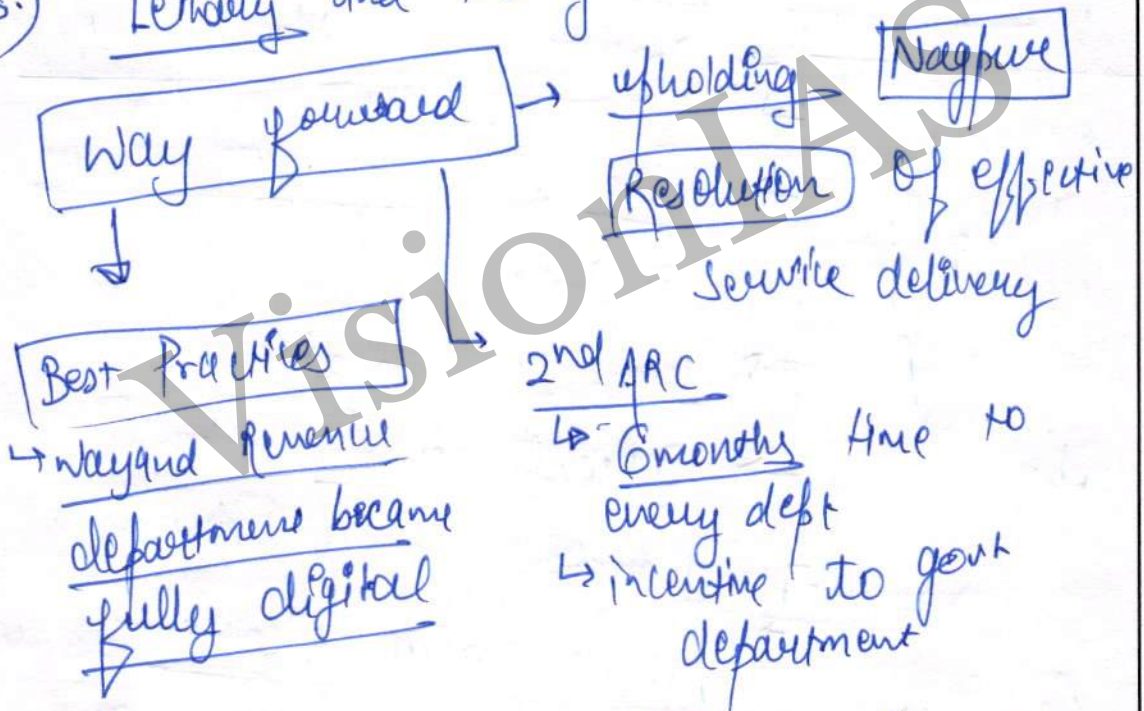 and
Way forward
upholding Nagpur
Resolution of effective
service delivery
Best Practices
↳ Wayanad Revenue
department became
fully digital
2nd ARC
↳ 6 months time to
every dept
↳ incentive to govt
department
VisionIAS